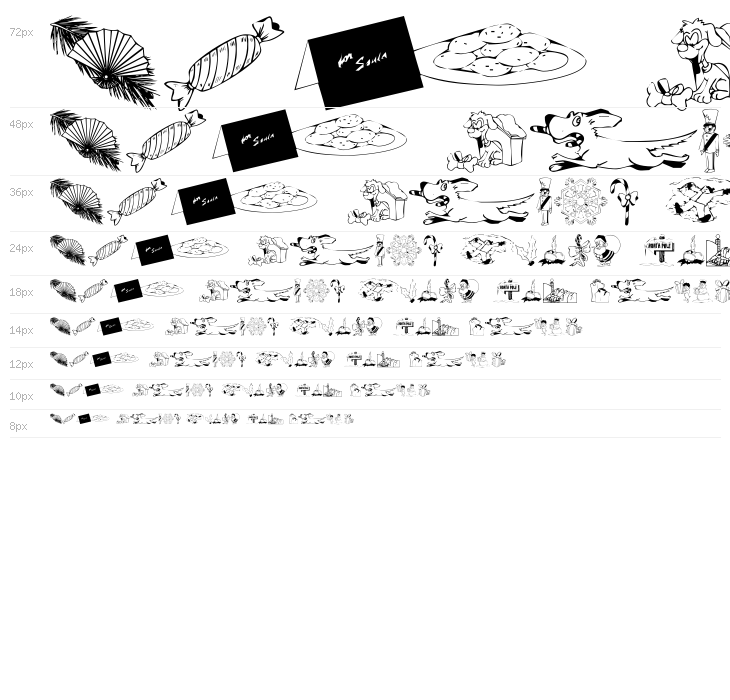 72px
for Santa
48px
for Santa
36px
for Santa
24px
for Santa
NORTH POLE
18px
14px
12px
10px
8px